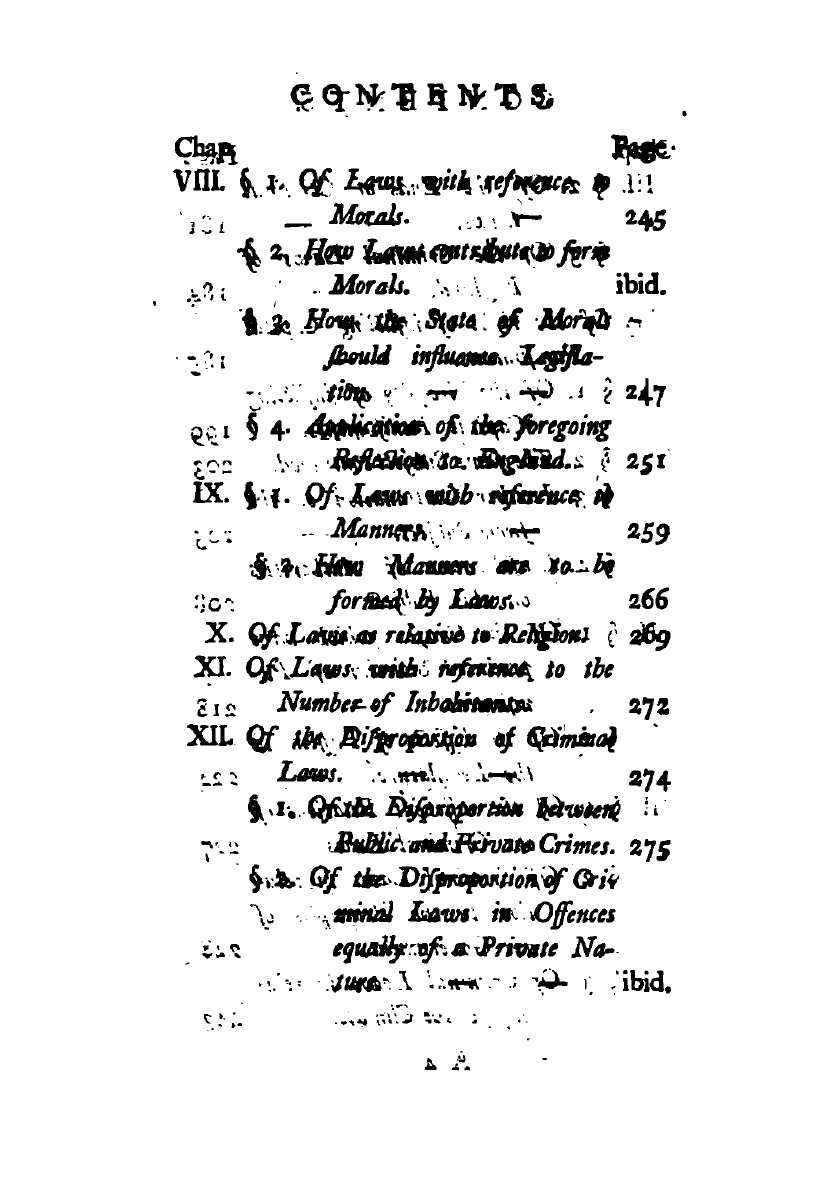 CONTENTS
Chap. Page
VIII. § 1. Of Laws with reference to
Morals. — 245
§ 2. How Laws contribute to form
Morals. ibid.
§ 3. How the State of Morals
ſhould influence Legiſla-
tion. — — 247
§ 4. Application of the foregoing
Reflection to England. 251
IX. § 1. Of Laws with reference to
Manners. — 259
§ 2. How Manners are to be
formed by Laws. 266
X. Of Laws as relative to Religion. 269
XI. Of Laws with reference to the
Number of Inhabitants. 272
XII. Of the Diſproportion of Criminal
Laws. — 274
§ 1. Of the Diſproportion between
Public and Private Crimes. 275
§ 2. Of the Diſproportion of Cri-
minal Laws in Offences
equally of a Private Na-
ture. — — ibid.